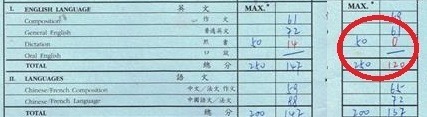 I. ENGLISH LANGUAGE 英文 MAX.* MAX.*
Composition 作文 61
General English 普通英文 72 61
Dictation 默書 50 14 50 0
Oral English 口試
TOTAL 總分 250 147 250 120
II. LANGUAGES 語文
Chinese/French Composition 中文/法文作文 59 65
Chinese/French Language 中國語文/法文 88 72
TOTAL 總分 200 147 200 137